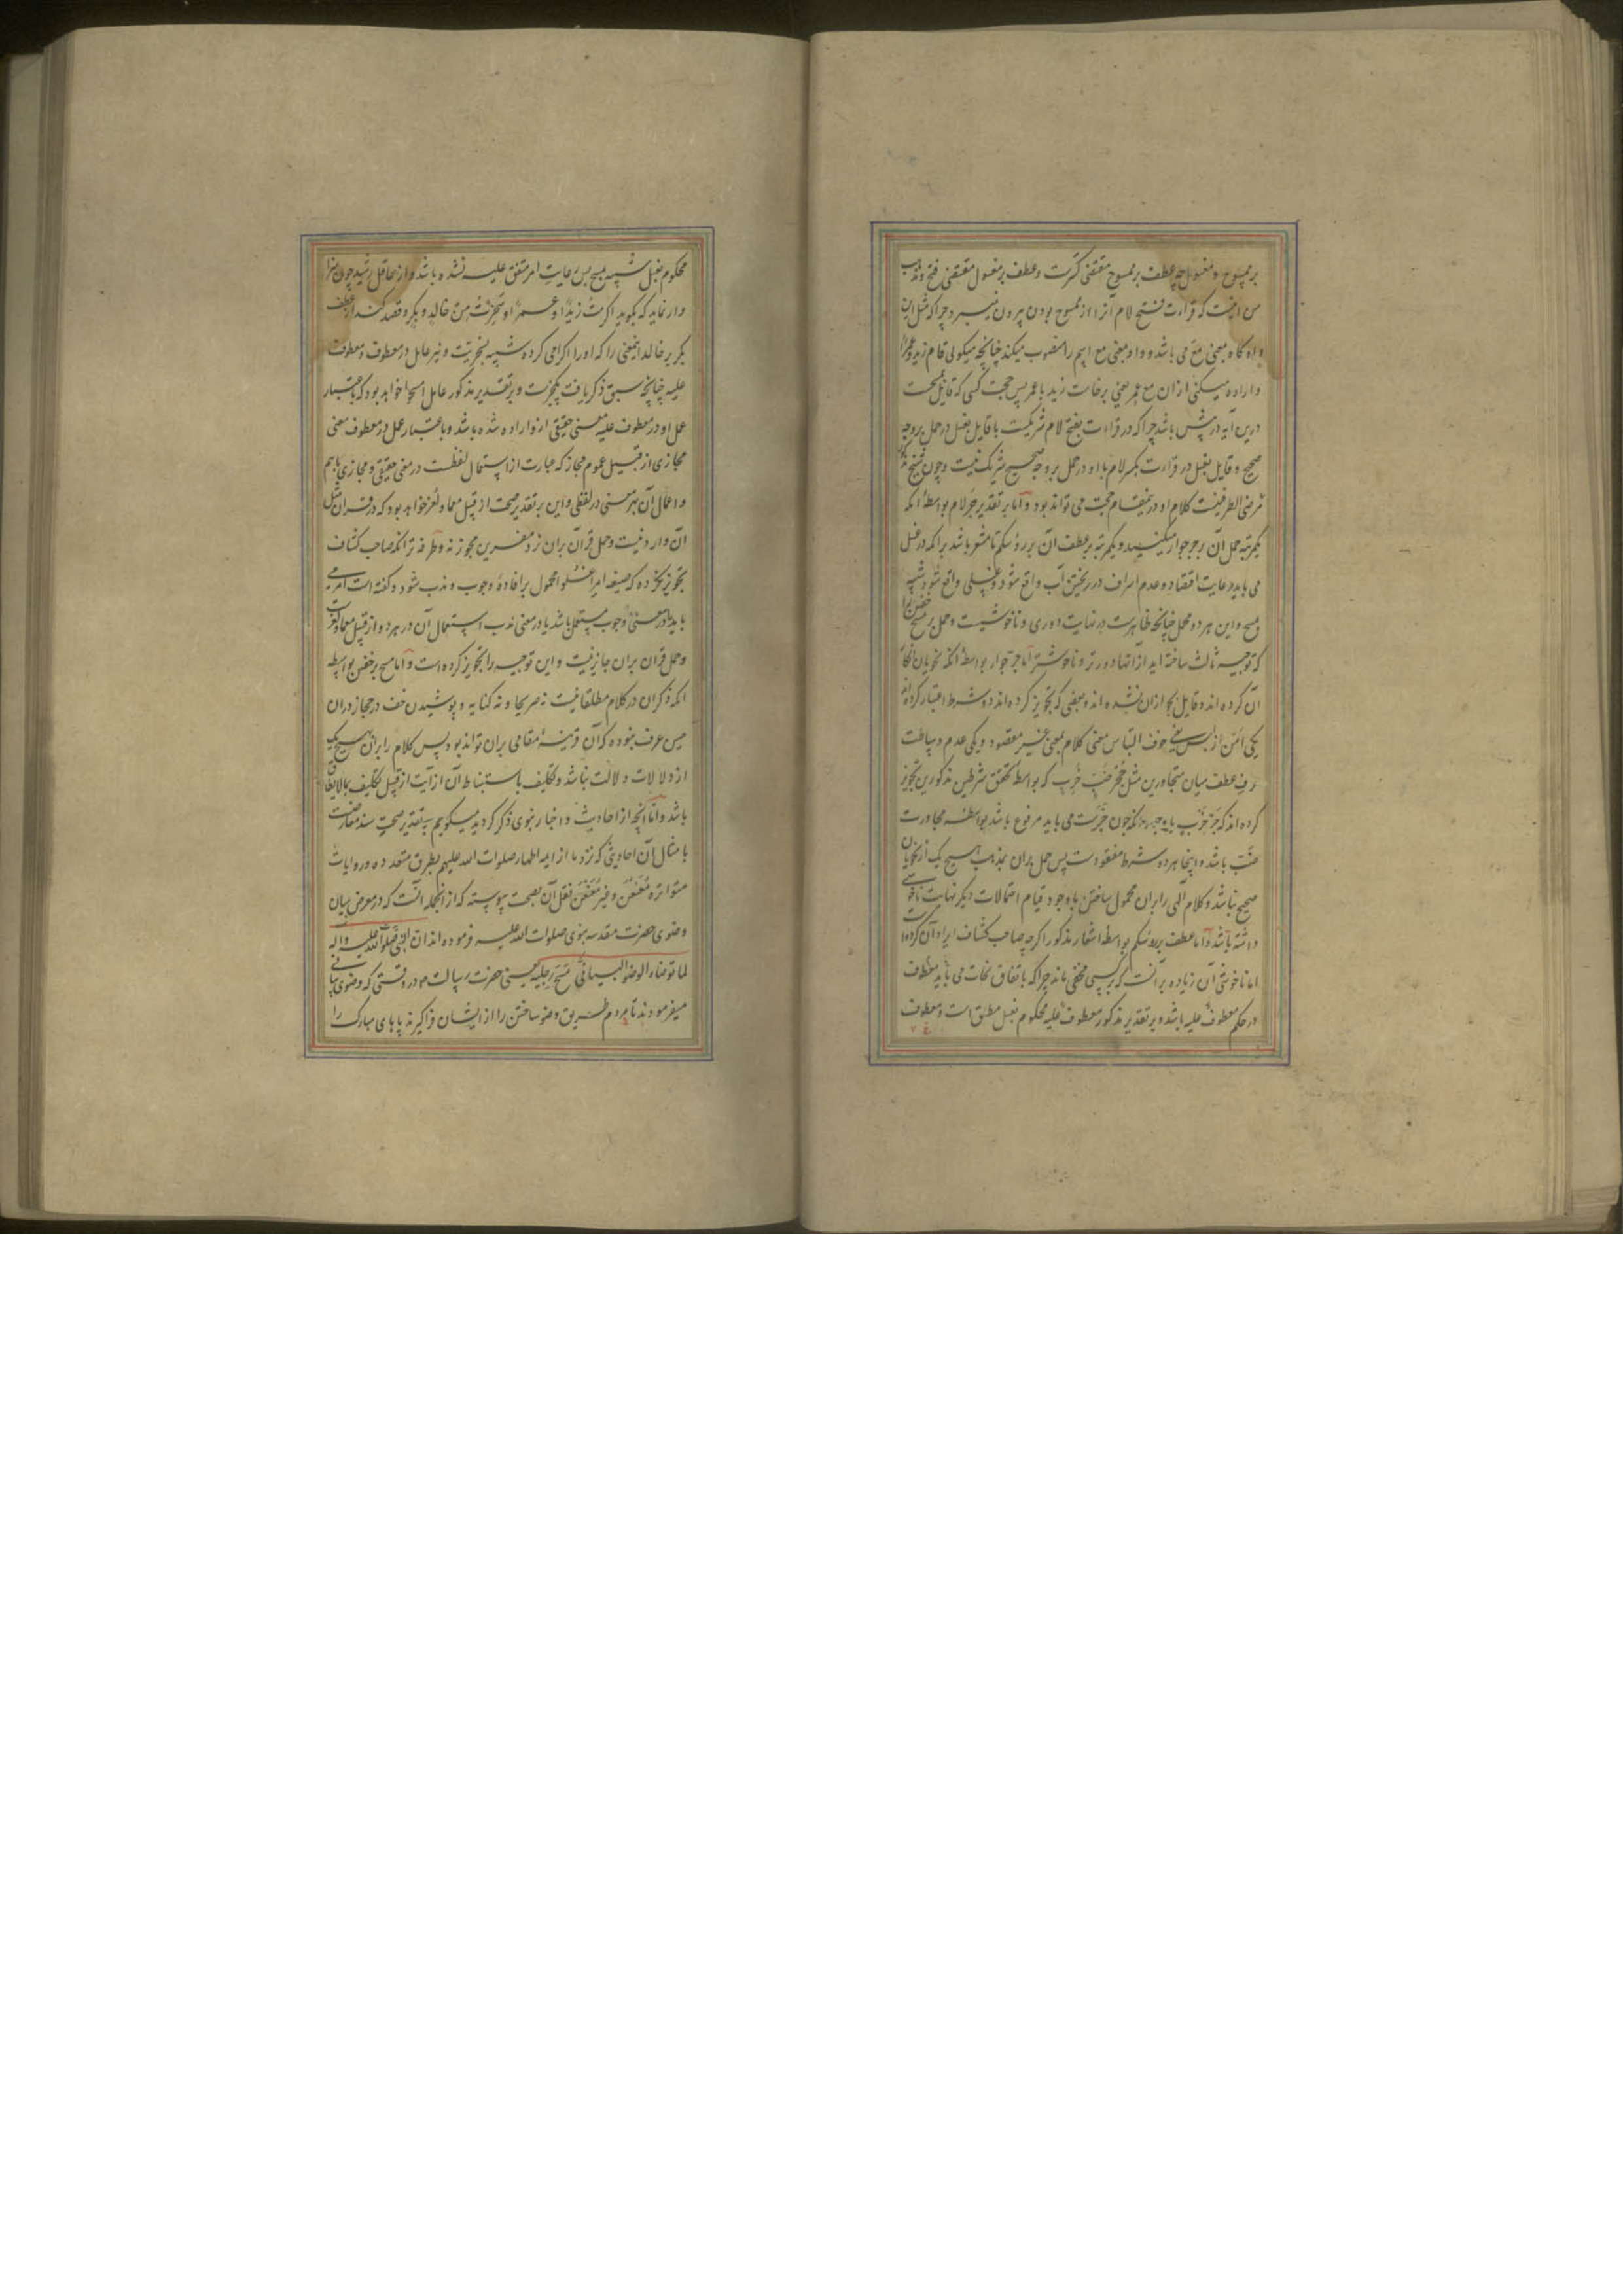 بر ممسوح و مغسول چه عطف بر ممسوح مقتضی کسرت و عطف بر مغسول مقتضی فتح و مذهب
من اینست که قراءت فتح لام آنرا از ممسوح بودن بیرون نمیبرد چراکه مثل این
واو گاه بمعنی مع می باشد و واو بمعنی مع اسم را منصوب میکند چنانچه میکوئی قام زید و عمرا
و اراده میکنی ازان مع عمر یعنی برخاست زید با عمر پس حجت کسی که قایل بمسحت
درین آیه در پیش باشد چراکه در قراءت بفتح لام شریکست با قایل بغسل در حمل بر وجه
صحیح و قایل بغسل در قراءت بکسر لام با او در حمل بر وجه صحیح شریک نیست و چون فتح
مرضی الطرفینست کلام او درینمقام حجت می تواند بود و اما بر تقدیر جر لام بواسطه آنکه
یکمرتبه حمل آن بر جر جوار میکنید و یکمرتبه بر عطف آن بر رؤسکم تا مشعر باشد بر آنکه در غسل
می باید رعایت اقتصاد و عدم اسراف در ریختن آب واقع شود و غسلی واقع شود شبیه
بمسح و این هر دو محمل چنانچه ظاهرست در نهایت دوری و ناخوشیست و حمل بر مسح خفین را
که توجیه ثالث ساخته اید از آنها دورتر و ناخوشتر اما جر جوار بواسطه آنکه نحویان انکار
آن کرده اند و قایل بجواز آن نشده اند و بعضی که تجویز کرده اند دو شرط اعتبار کرده اند
یکی امن از لبس یعنی خوف التباس معنی کلام بمعنی غیر مقصود و یکی عدم وساطت
حرف عطف میان متجاورین مثل جحر ضب خرب که بواسطه تحقق شرطین مذکورین تجویز
کرده اند که جر خرب با وجود آنکه چون خبرست می باید مرفوع باشد بواسطه مجاورت
ضب باشد و اینجا هر دو شرط مفقودست پس حمل بران بمذهب هیچ یک از نحویان
صحیح نباشد و کلام آلهی را بران محمول ساختن با وجود قیام احتمالات دیگر نهایت ناخوشی
داشته باشد و اما عطف بر رؤسکم بواسطه اشعار مذکور اکرچه صاحب کشاف ایراد آن کرده است
اما ناخوشی آن زیاده بر آنست که بر کسی مخفی ماند چراکه باتفاق نحات می باید معطوف
در حکم معطوف علیه باشد و بر تقدیر مذکور معطوف علیه محکوم بفعل مطلق است و معطوف
محکوم بغسل شبیه بمسح پس رعایت امر متفق علیه نشده باشد و از عاقل رشید چون سزا
وار نماید که بکوید اکرمت زیدا و عمرا و سخرت من خالد و بکر و قصد کند از عطف
بکر بر خالد اینمعنی را که او را اکرامی کرده شبیه بسخریت و نیز عامل در معطوف و معطوف
علیه چنانچه سبق ذکر یافت یکیست و بر تقدیر مذکور عامل امسحوا خواهد بود که باعتبار
عمل او در معطوف علیه معنی حقیقی ازو اراده شده باشد و باعتبار عمل در معطوف معنی
مجازی از قبیل عموم مجاز که عبارت از استعمال لفظست در معنی حقیقی و مجازی باهم
و اعمال آن بهر معنی در لفظی و این بر تقدیر صحت از قبیل معما و لغز خواهد بود که در قرآن مثل
آن وارد نیست و حمل قرآن بران نزد مفسرین مجوز نه و طرفه تر آنکه صاحب کشاف
تجویز نکرده که صیغه امر اغسلوا محمول بر افاده وجوب و ندب شود و کفته است امر می
باید یا در معنی وجوب مستعمل باشد یا در معنی ندب استعمال آن در هر دو از قبیل معما و لغزست
و حمل قرآن بران جایز نیست و این توجیه را تجویز کرده است و اما مسح بر خفین بواسطه
آنکه ذکر آن در کلام مطلقا نیست نه صریحا و نه کنایه و پوشیدن خف در حجاز دران
حین عرف نبوده که آن قرینه مقامی بران تواند بود پس کلام را بران هیچ یک
از دلالات دلالت نباشد و تکلیف باستنباط آن از آیت از قبیل تکلیف بمالایطاق
باشد و اما آنچه از احادیث و اخبار نبوی ذکر کردید میکوییم بتقدیر صحت سند معارضست
با مثال آن احادیثی که نزد ما از ایمه اطهار صلوات الله علیهم بطرق متعدده و روایات
متواتره معنعن و غیر معنعن نقل آن بصحت پیوسته که از انجمله آنست که در معرض بیان
وضوی حضرت مقدسه نبوی صلوات الله علیه فرموده اند ان النبی صلی الله علیه و آله
لما توضاء الوضو البیانی مسح رجلیه یعنی حضرت رسالت در وقتی که وضوی بیانی
میفرمودند تا مردم طریق وضو ساختن را از ایشان فرا کیرند پاهای مبارک را